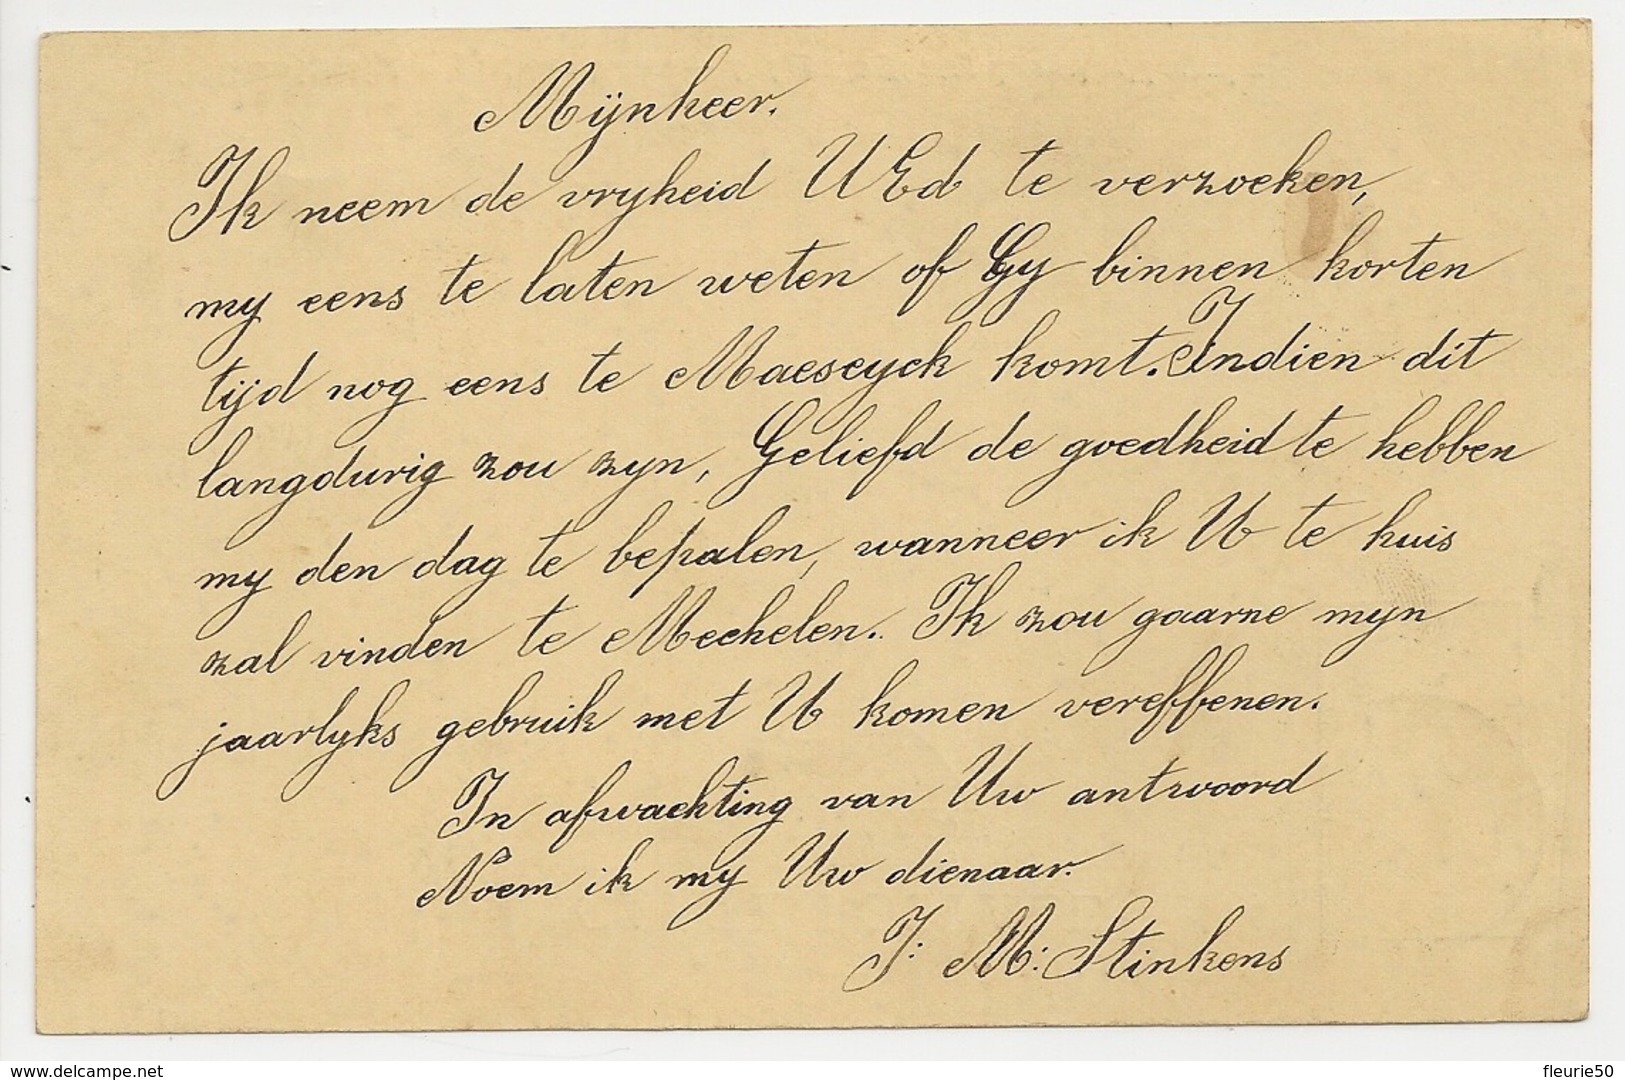 Mijnheer.
Ik neem de vryheid UEd te verzoeken,
my eens te laten weten of Gy binnen korten
tijd nog eens te Maeseyck komt. Indien dit
langdurig zou zyn, Geliefd de goedheid te hebben
my den dag te bepalen, wanneer ik U te huis
zal vinden te Mechelen. Ik zou gaarne myn
jaarlyks gebruik met U komen vereffenen.
In afwachting van Uw antwoord
Noem ik my Uw dienaar.
J: M: Stinkens
www.delcampe.net
fleurie50